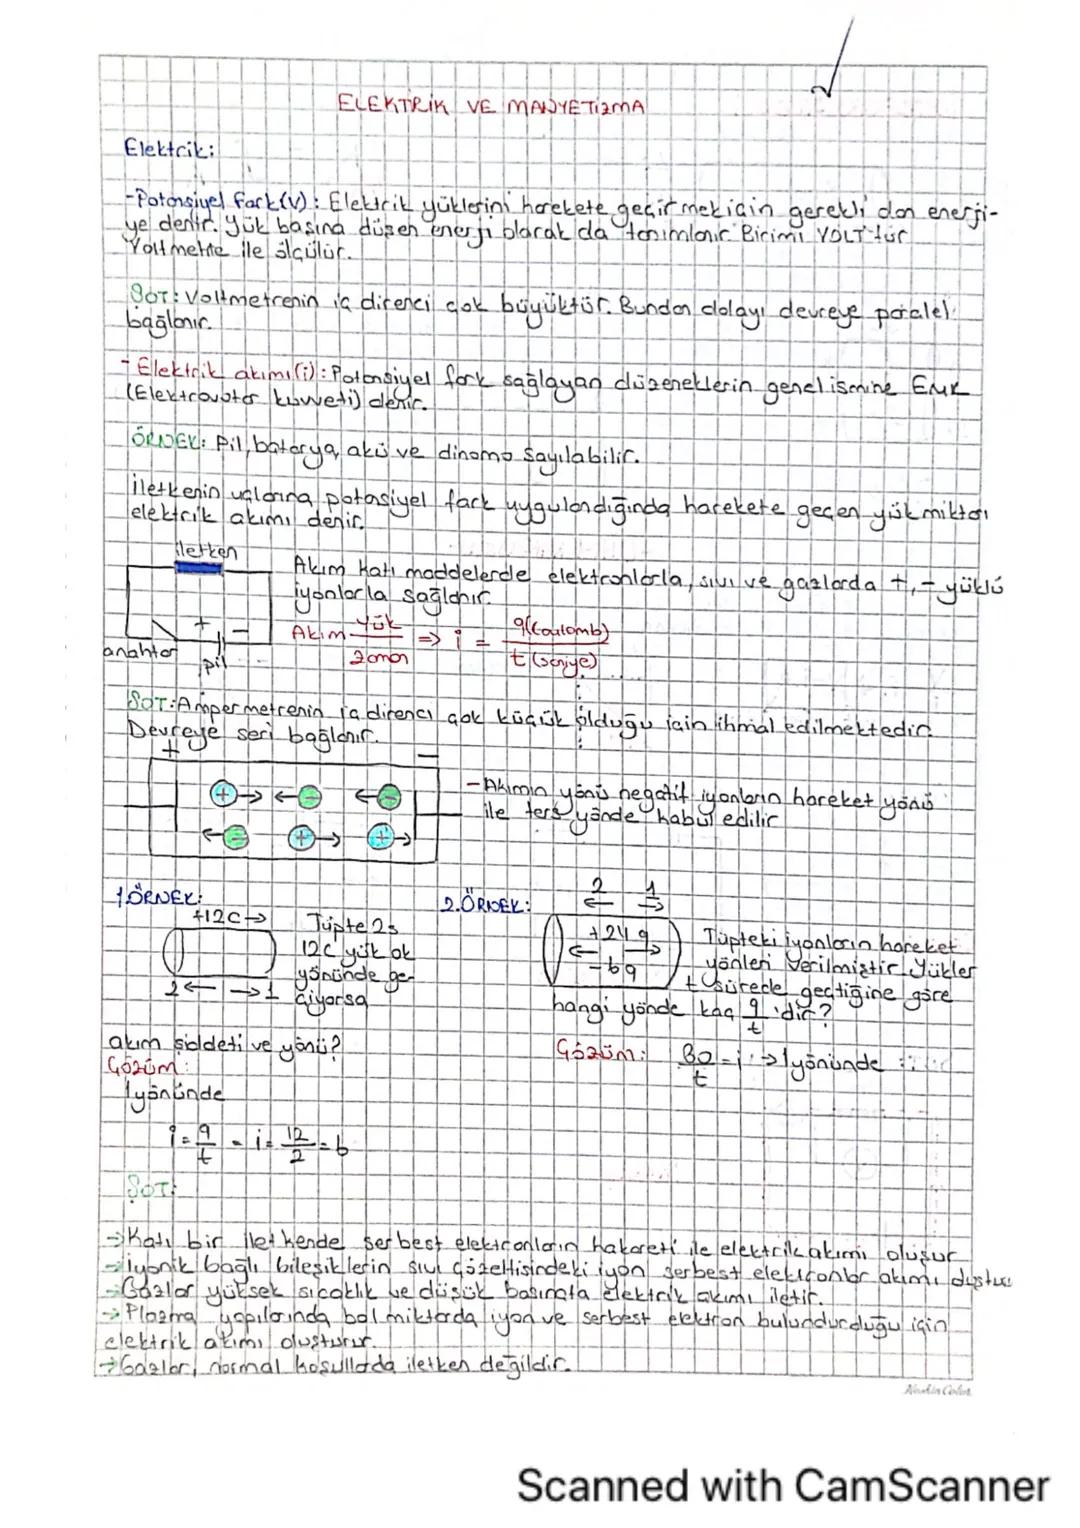 ELEKTRİK VE MANYETİZMA
Elektrik:
-Potansiyel fark(V): Elektrik yüklerini harekete geçirmek için gerekli olan enerji-
ye denir. Yük başına düşen enerji olarak da tanımlanır. Birimi VOLT'tur
Voltmetre ile ölçülür.
NOT: Voltmetrenin iç direnci çok büyüktür. Bundan dolayı devreye paralel
bağlanır.
- Elektrik akımı(i): Potansiyel fark sağlayan düzeneklerin genel ismine EMK
(Elektromotor kuvveti) denir.
ÖRNEK: Pil, batarya, akü ve dinamo sayılabilir.
İletkenin uçlarına potasiyel fark uygulandığında harekete geçen yük miktarı
elektrik akımı denir.
iletken
Akım katı maddelerde elektronlarla, sıvı ve gazlarda +,- yüklü
iyonlarla sağlanır.
+ -
anahtar
pil
Akım = yük / zaman => i = q(coulomb) / t(saniye)
NOT: Ampermetrenin iç direnci çok küçük olduğu için ihmal edilmektedir.
Devreye seri bağlanır.
+ -
+ → ← - ← -
← - + → + →
- Akımın yönü negatif iyonların hareket yönü
ile ters yönde kabul edilir
1.ÖRNEK:
+12C →
2 ← → 1
Tüpte 2s
12C yük ok
yönünde ge-
çiyorsa
akım şiddeti ve yönü?
Çözüm:
1 yönünde
i = q/t = i = 12/2 = 6
2.ÖRNEK:
2 1
← →
+24q
← →
-6q
Tüpteki iyonların hareket
yönleri verilmiştir. Yükler
t sürede geçtiğine göre
hangi yönde kaç q/t 'dir?
Çözüm: 30/t = i → 1 yönünde
NOT:
→ Katı bir iletkende serbest elektronların hakareti ile elektrik akımı oluşur
→ İyonik bağlı bileşiklerin sıvı çözeltisindeki iyon serbest elektronlar akımı
→ Gazlar yüksek sıcaklık ve düşük basınçta elektrik akımı iletir.
→ Plazma yapılarında bol miktarda iyon ve serbest elektron bulundurduğu için
elektrik akımı oluşturur.
→ Gazlar, normal koşullada iletken değildir.
Scanned with CamScanner